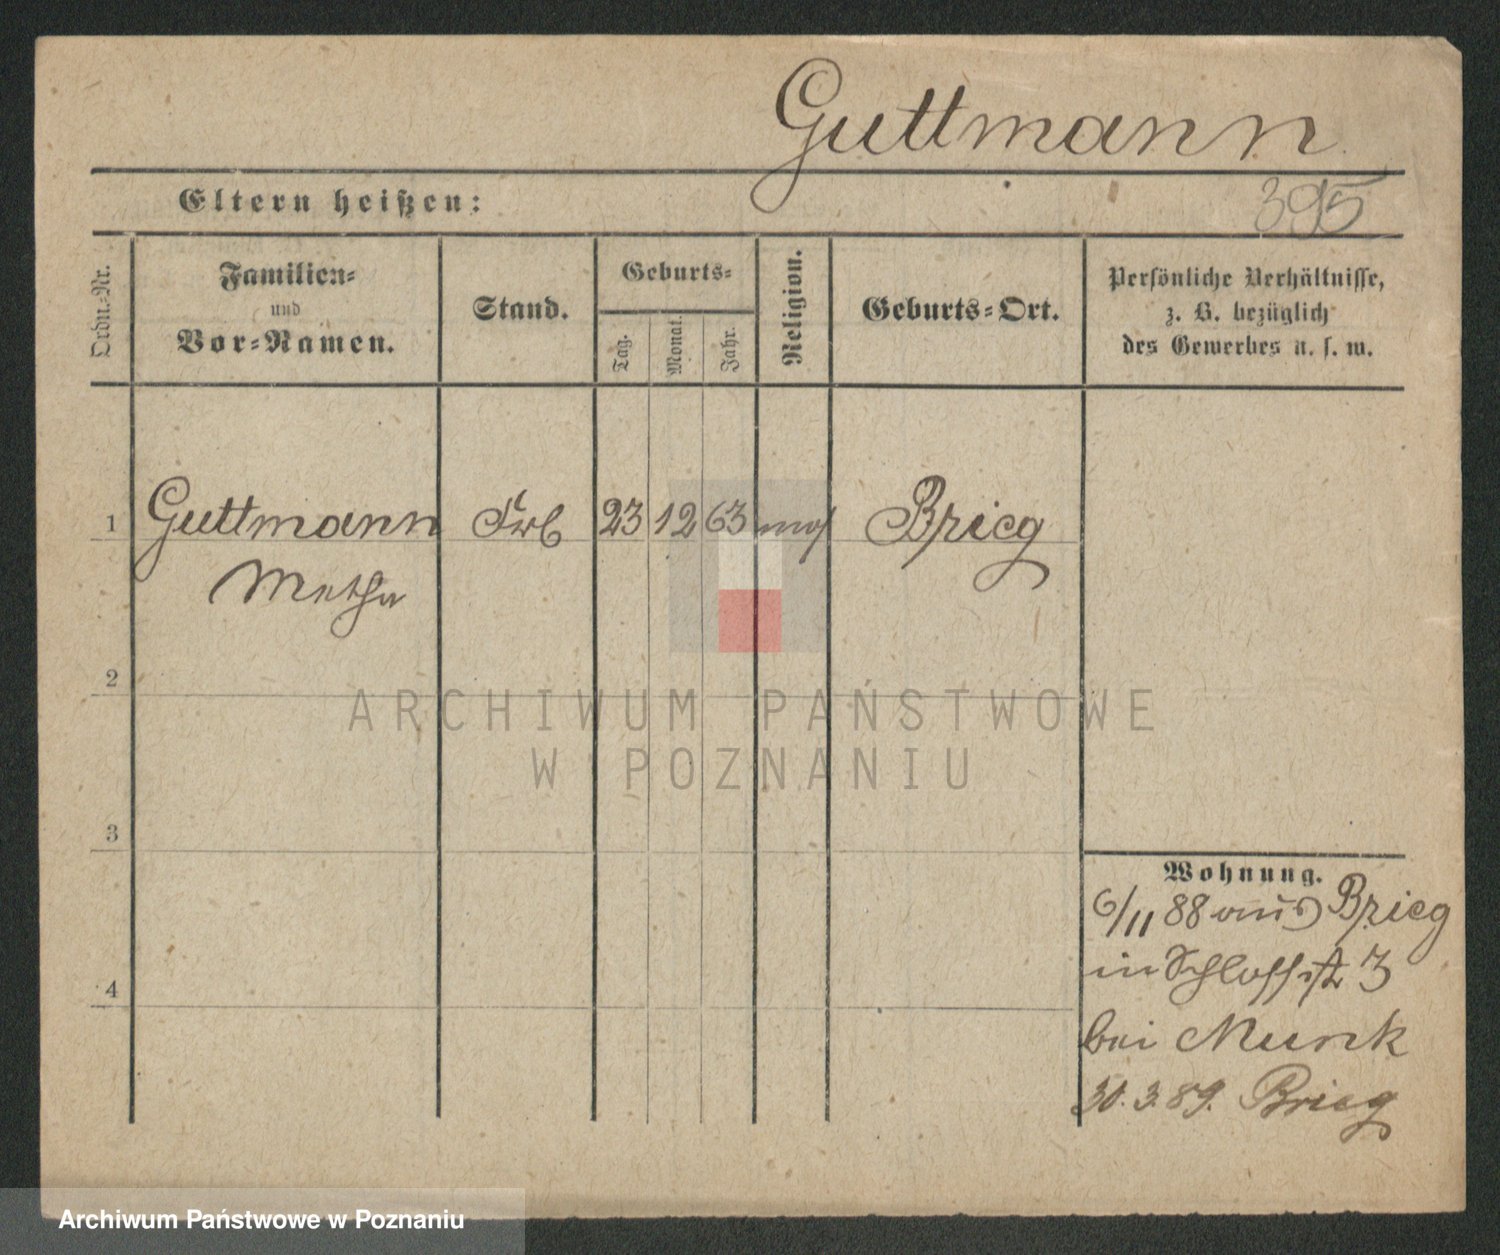 Guttmann
Eltern heißen:
395
Ordn.-Nr.
Familien-
und
Vor-Namen.
Stand.
Geburts-
Tag.
Monat.
Jahr.
Religion.
Geburts-Ort.
Persönliche Verhältnisse,
z. B. bezüglich
des Gewerbes u. s. w.
1 Guttmann 23 12 63 mos Brieg
Metha
2
3
4
Wohnung.
6/11 88 aus Brieg
in Schloßstr 3
bei Munk
30.3.89. Brieg
ARCHIWUM PAŃSTWOWE
W POZNANIU
Archiwum Państwowe w Poznaniu